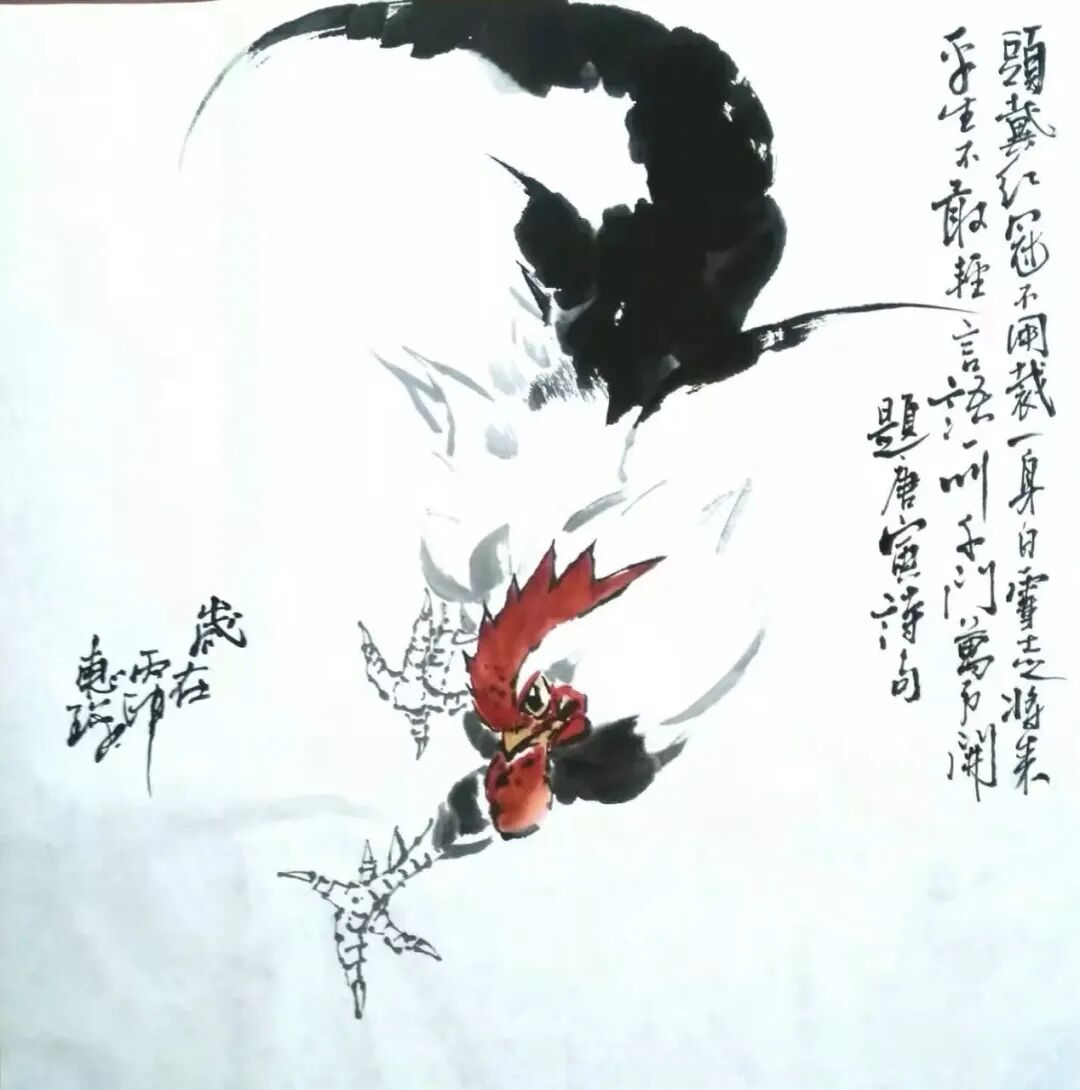 頭戴红冠不用裁一身白雪走將来
平生不敢輕言語一叫千門萬户開
題唐寅詩句
歲在
丙申
惠